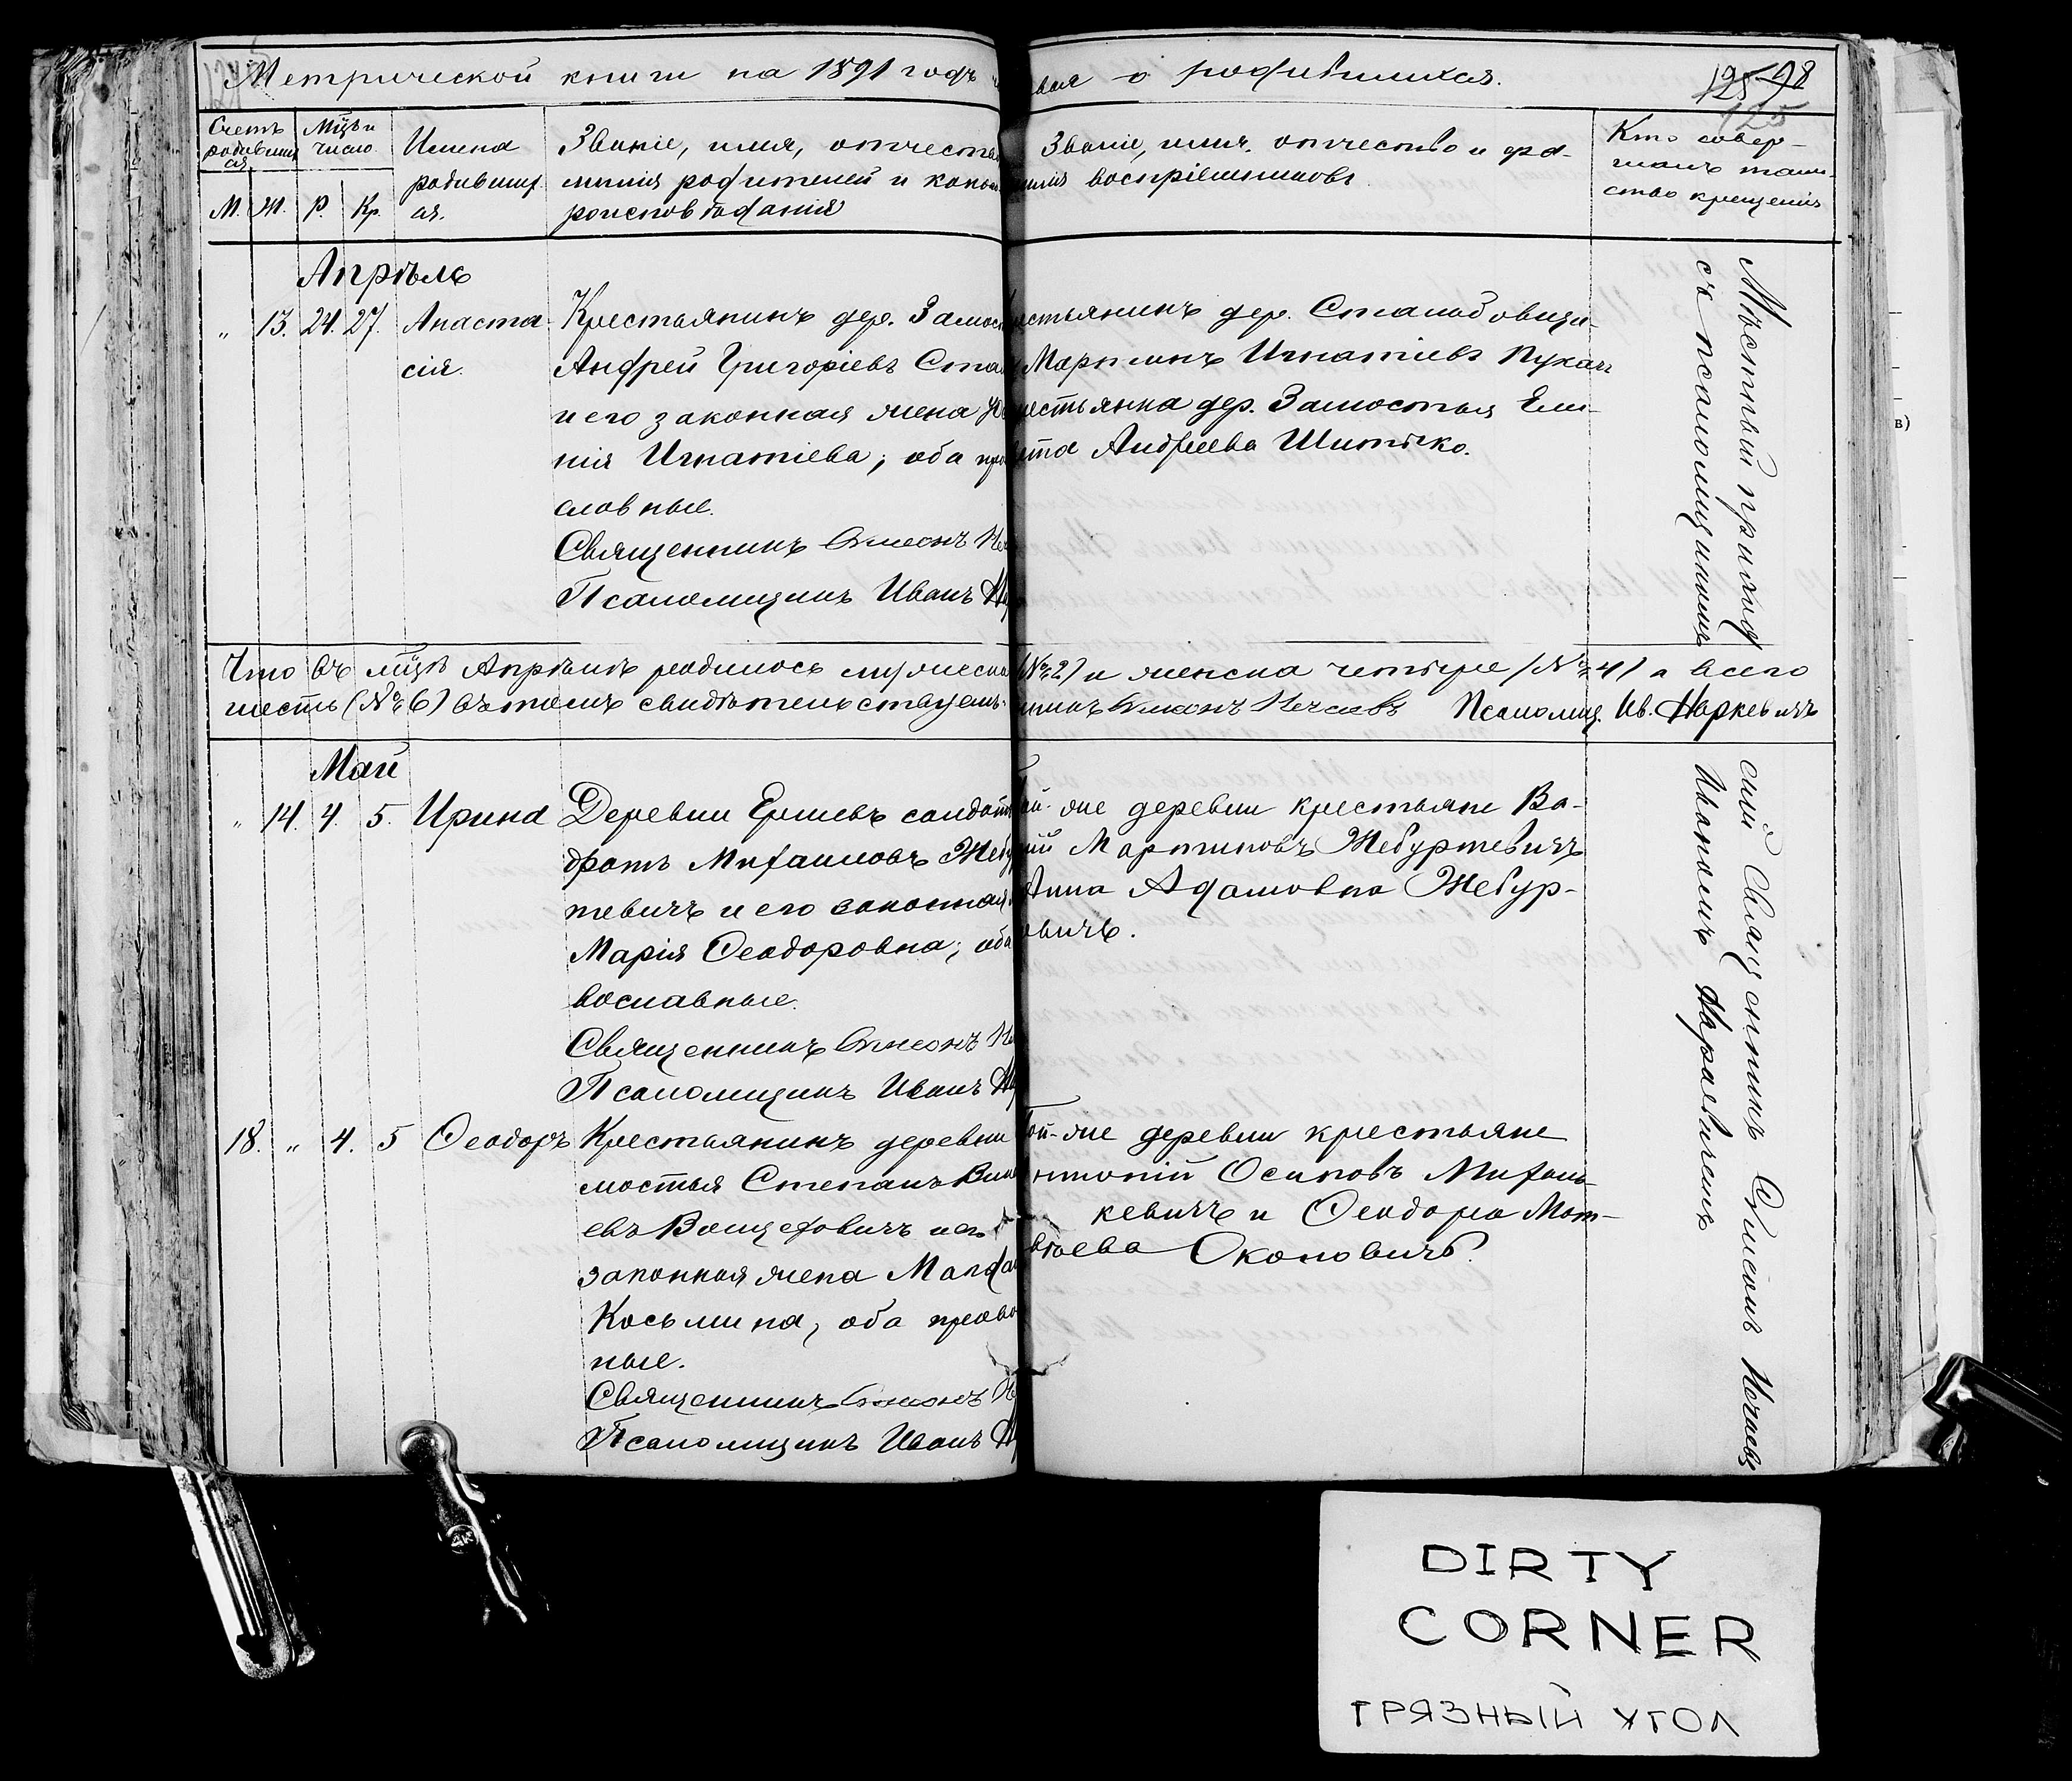 Метрической книги на 1891 годъ
вая о родившихся.
125 98
125
Счетъ родившихся
Мцъ и число
Имена родившихся.
М. Ж. Р. Кр.
Званіе, имя, отчество
милія родителей и како
роисповѣданія
Званіе, имя, отчество и фа-
милія воспріемниковъ
Кто совер-
шалъ таин-
ство крещенія
Апрѣль
" 13. 24. 27. Анаста-
сія.
Крестьянинъ дер. Замос
Андрей Григоріевъ Ста
и его законная жена
нія Игнатіева; оба пра
славные.
Священникъ Симеонъ Не
Псаломщикъ Иванъ На
естьянинъ дер. Сталабовщи-
Мартинъ Игнатіевъ Пукач
рестьянка дер. Замостья Ели-
вета Андреева Шитько.
Мѣстный приход
съ псаломщикомъ
Что въ мцѣ Апрѣлѣ родилось мужеска (№ 2) и женска четыре (№ 4) а всего
шесть (№ 6) въ томъ свидѣтельствуемъ. Симеонъ Нечаевъ Псаломщ. Ив. Наркевичъ
Май
" 14. 4. 5. Ирина
Деревни Ершевъ солдатъ
дратъ Михаиловъ Жебу
тевичъ и его законная
Марія Ѳеодоровна; оба
вославные.
Священникъ Симеонъ Не
Псаломщикъ Иванъ На
той-же деревни крестьяне Ва-
лій Мартиновъ Жебуртевичъ
Анна Адамовна Жебур-
овичъ.
18. " 4. 5 Ѳеодоръ
Крестьянинъ деревни
мостья Степанъ Вик
евъ Войцеховичъ и его
законная жена Магда
Косьмина, оба правос
ные.
Священникъ Симеонъ Не
Псаломщикъ Иванъ На
той-же деревни крестьяне
нтоній Осиповъ Михаль-
кевичъ и Ѳеодора Мат-
вѣева Околовичъ.
скій Священникъ Симеонъ Нечаевъ
Иваномъ Наркевичемъ
DIRTY
CORNER
ГРЯЗНЫЙ УГОЛ